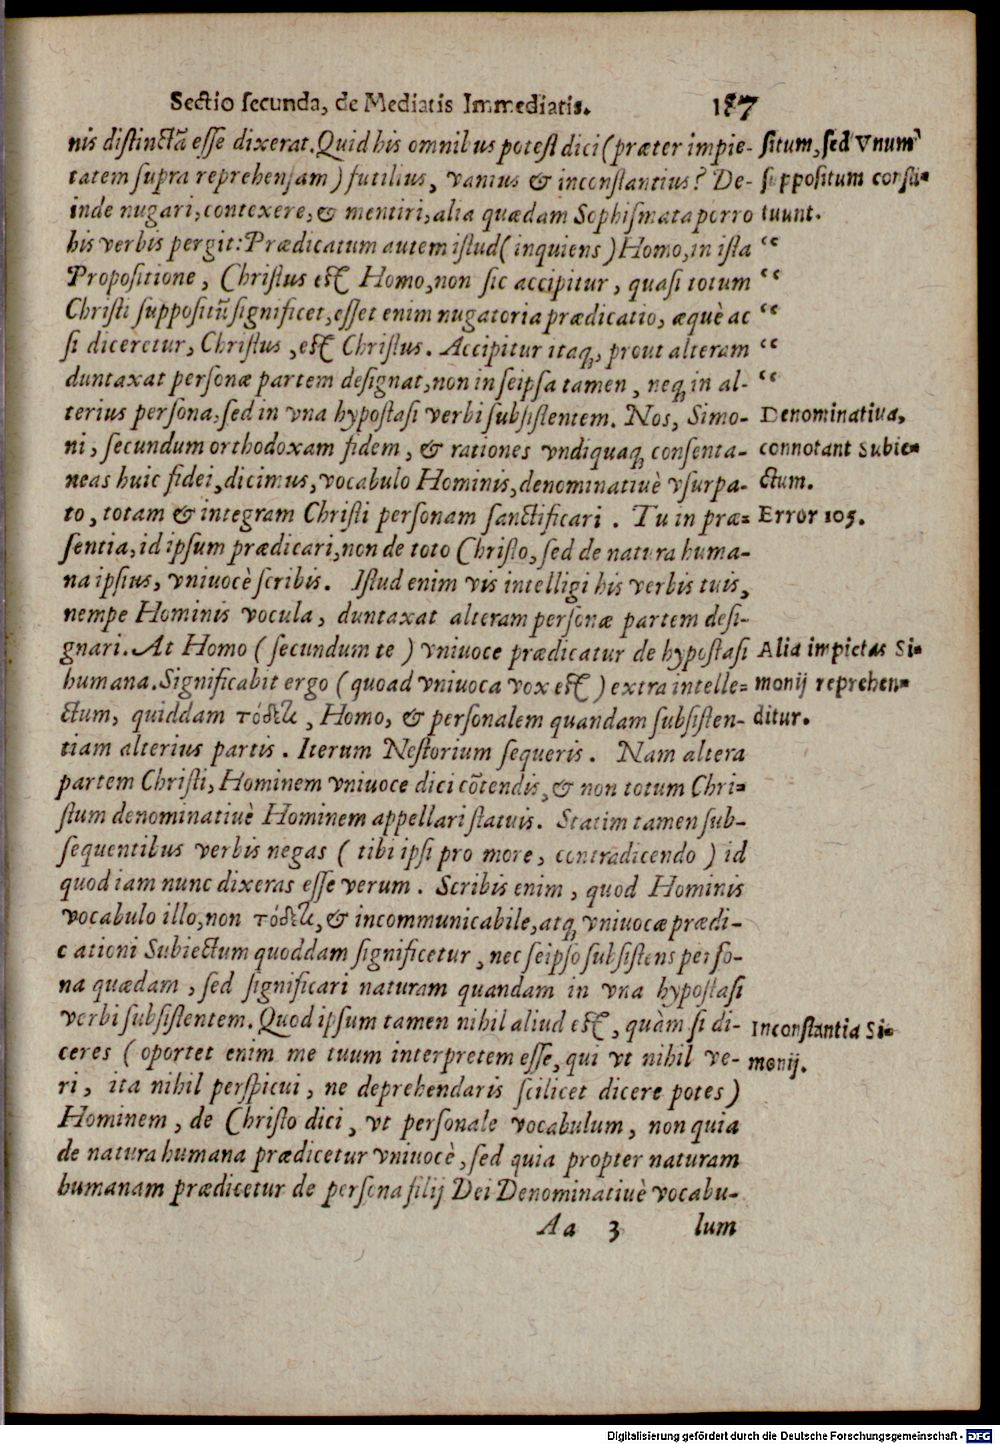 Sectio secunda, de Mediatis Immediatis. 187
nis distinctā esse dixerat. Quid his omnibus potest dici (præter impie-
tatem supra reprehensam) futilius, vanius & inconstantius? De-
inde nugari, contexere, & mentiri, alia quædam Sophismata porro
his verbis pergit: Prædicatum autem istud (inquiens) Homo, in ista
Propositione, Christus est Homo, non sic accipitur, quasi totum
Christi suppositū significet, esset enim nugatoria prædicatio, æquè ac
si diceretur, Christus, est Christus. Accipitur itaq́, prout alteram
duntaxat personæ partem designat, non in seipsa tamen, neq́ in al-
terius persona, sed in vna hypostasi verbi subsistentem. Nos, Simo-
ni, secundum orthodoxam fidem, & rationes vndiquaq́ consenta-
neas huic fidei, dicimus, vocabulo Hominis, denominatiuè vsurpa-
to, totam & integram Christi personam sanctificari. Tu in præ-
sentia, id ipsum prædicari, non de toto Christo, sed de natura huma-
na ipsius, vniuocè scribis. Istud enim vis intelligi his verbis tuis,
nempe Hominis vocula, duntaxat alteram personæ partem desi-
gnari. At Homo (secundum te) vniuoce prædicatur de hypostasi
humana. Significabit ergo (quoad vniuoca vox est) extra intelle-
ctum, quiddam τόδε τι, Homo, & personalem quandam subsisten-
tiam alterius partis. Iterum Nestorium sequeris. Nam altera
partem Christi, Hominem vniuoce dici cōtendis, & non totum Chri-
stum denominatiuè Hominem appellari statuis. Statim tamen sub-
sequentibus verbis negas (tibi ipsi pro more, contradicendo) id
quod iam nunc dixeras esse verum. Scribis enim, quod Hominis
vocabulo illo, non τόδε τι, & incommunicabile, atq́ vniuocæ prædi-
cationi Subiectum quoddam significetur, nec seipso subsistens perso-
na quædam, sed significari naturam quandam in vna hypostasi
verbi subsistentem. Quod ipsum tamen nihil aliud est, quàm si di-
ceres (oportet enim me tuum interpretem esse, qui vt nihil ve-
ri, ita nihil perspicui, ne deprehendaris scilicet dicere potes)
Hominem, de Christo dici, vt personale vocabulum, non quia
de natura humana prædicetur vniuocè, sed quia propter naturam
humanam prædicetur de persona filij Dei Denominatiuè vocabu-
Aa 3 lum
situm, sed Vnum
suppositum consti-
tuunt.
“
“
“
“
“
Denominatiua,
connotant Subie-
ctum.
Error 105.
Alia impietas Si-
monij reprehen-
ditur.
Inconstantia Si-
monij.
Digitalisierung gefördert durch die Deutsche Forschungsgemeinschaft - DFG